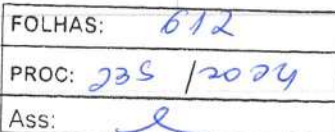 FOLHAS: 612
PROC: 235 /2024
Ass: